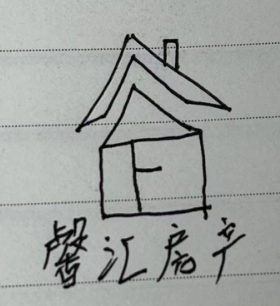 馨汇房产